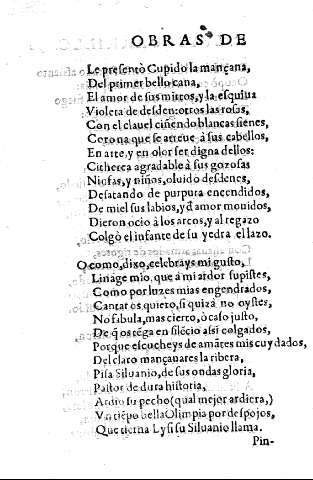 OBRAS DE
Le presentò Cupido la mançana,
Del primer bello cana,
El amor de sus mirtos, y la esquiua
Violeta de desden: otros las rosas,
Con el clauel ciñendo blancas sienes,
Corona que se atreue à sus cabellos,
En arte, y en olor ser digna dellos:
Citherea agradable à sus gozosas
Ninfas, y niños, oluido desdenes,
Desatando de purpura encendidos,
De miel sus labios, y đ amor mouidos,
Dieron ocio à los arcos, y al regazo
Colgò el infante de su yedra el lazo.
O como, dixo, celebrays mi gusto,
Linage mio, que a mi ardor supistes,
Como por luzes mias engendrados,
Cantar os quiero, si quiza no oystes,
No fabula, mas cierto, ò caso justo,
De q̃ os tẽga en silẽcio assi colgados,
Porque escucheys de amãtes mis cuydados,
Del claro mançanares la ribera,
Pisa Siluanio, de sus ondas gloria,
Pastor de dura historia,
Ardio su pecho (qual mejor ardiera,)
Vn tiẽpo bella Olimpia por despojos,
Que tierna Lysi su Siluanio llama.
Pin-